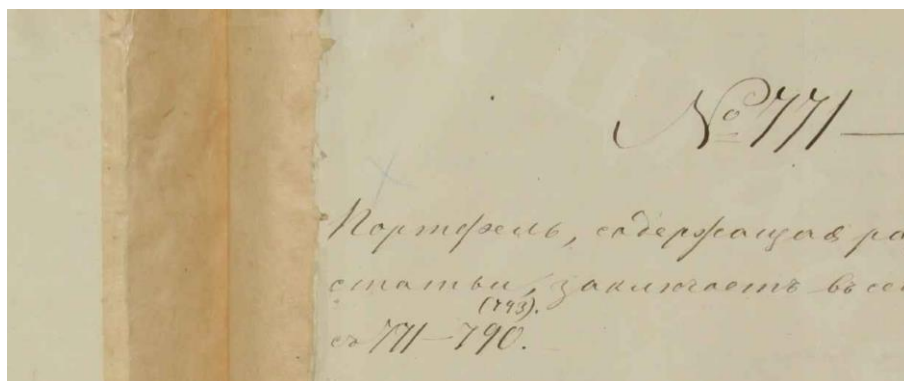 № 771 —
Портфель, содержащая ра
статьи, заключаетъ въ се
(793).
съ 771—790.